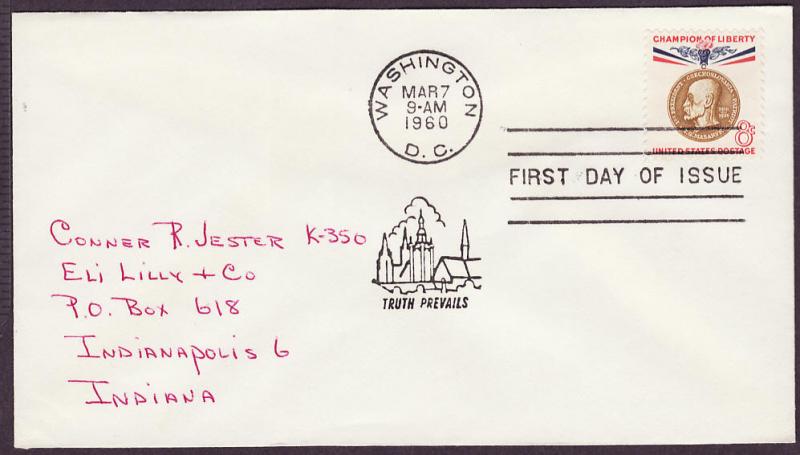 CHAMPION OF LIBERTY
8¢
UNITED STATES POSTAGE
WASHINGTON
MAR 7
9-AM
1960
D. C.
FIRST DAY OF ISSUE
TRUTH PREVAILS
Conner R. Jester K-350
Eli Lilly + Co
P.O. Box 618
Indianapolis 6
Indiana